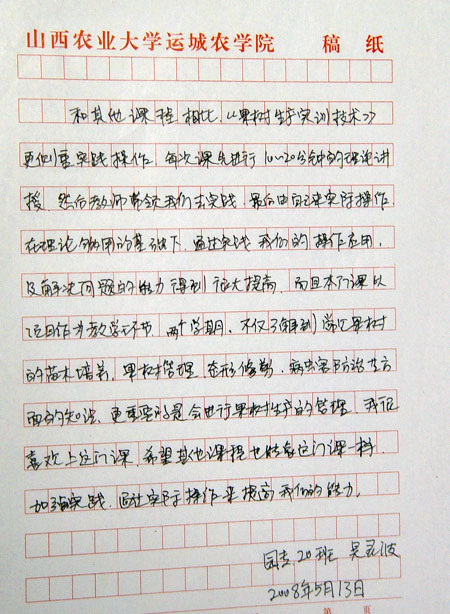 山西农业大学运城农学院 稿纸
和其他课程相比,《果树生产实训技术》
更侧重实践操作。每次课先进行10~20分钟的理论讲
授,然后教师带领我们去实践,最后由自己来实际操作。
在理论够用的基础下,通过实践我们的操作应用,
及解决问题的能力得到很大提高,而且本门课以
项目作为教学环节,两个学期,不仅了解到学汇果树
的苗木培养,果树管理,整形修剪,病虫害防治等方
面的知识,更重要的是会进行果树生产的管理,我很
喜欢上这门课,希望其他课程也能象这门课一样
加强实践,通过实际操作来提高我们的能力。
园专20班 吴
2008年5月13日
第 页